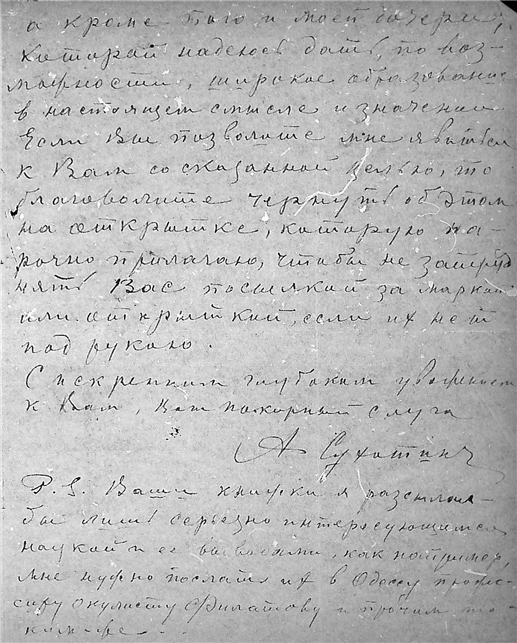 а кроме того и моей дочери,
которой надеюсь дать, по воз-
можности, широкое образование
в настоящем смысле и значении
Если Вы позволите мне явиться
к Вам со сказанной целью, то
благоволите черкнуть об этом
на открытке, которую на-
рочно прилагаю, чтобы не затруд-
нять Вас посылкой за маркой
или открыткой, если их нет
под рукою.
С искренним глубоким уважением
к Вам, Ваш покорный слуга
А Сухотинъ
P.S. Ваши книжки я разсылал-
бы лишь серьезно интересующимся
наукой и ее выводами, как например,
мне нужно послать их в Одессу профес-
сору окулисту Филатову и прочим та-
ким же.